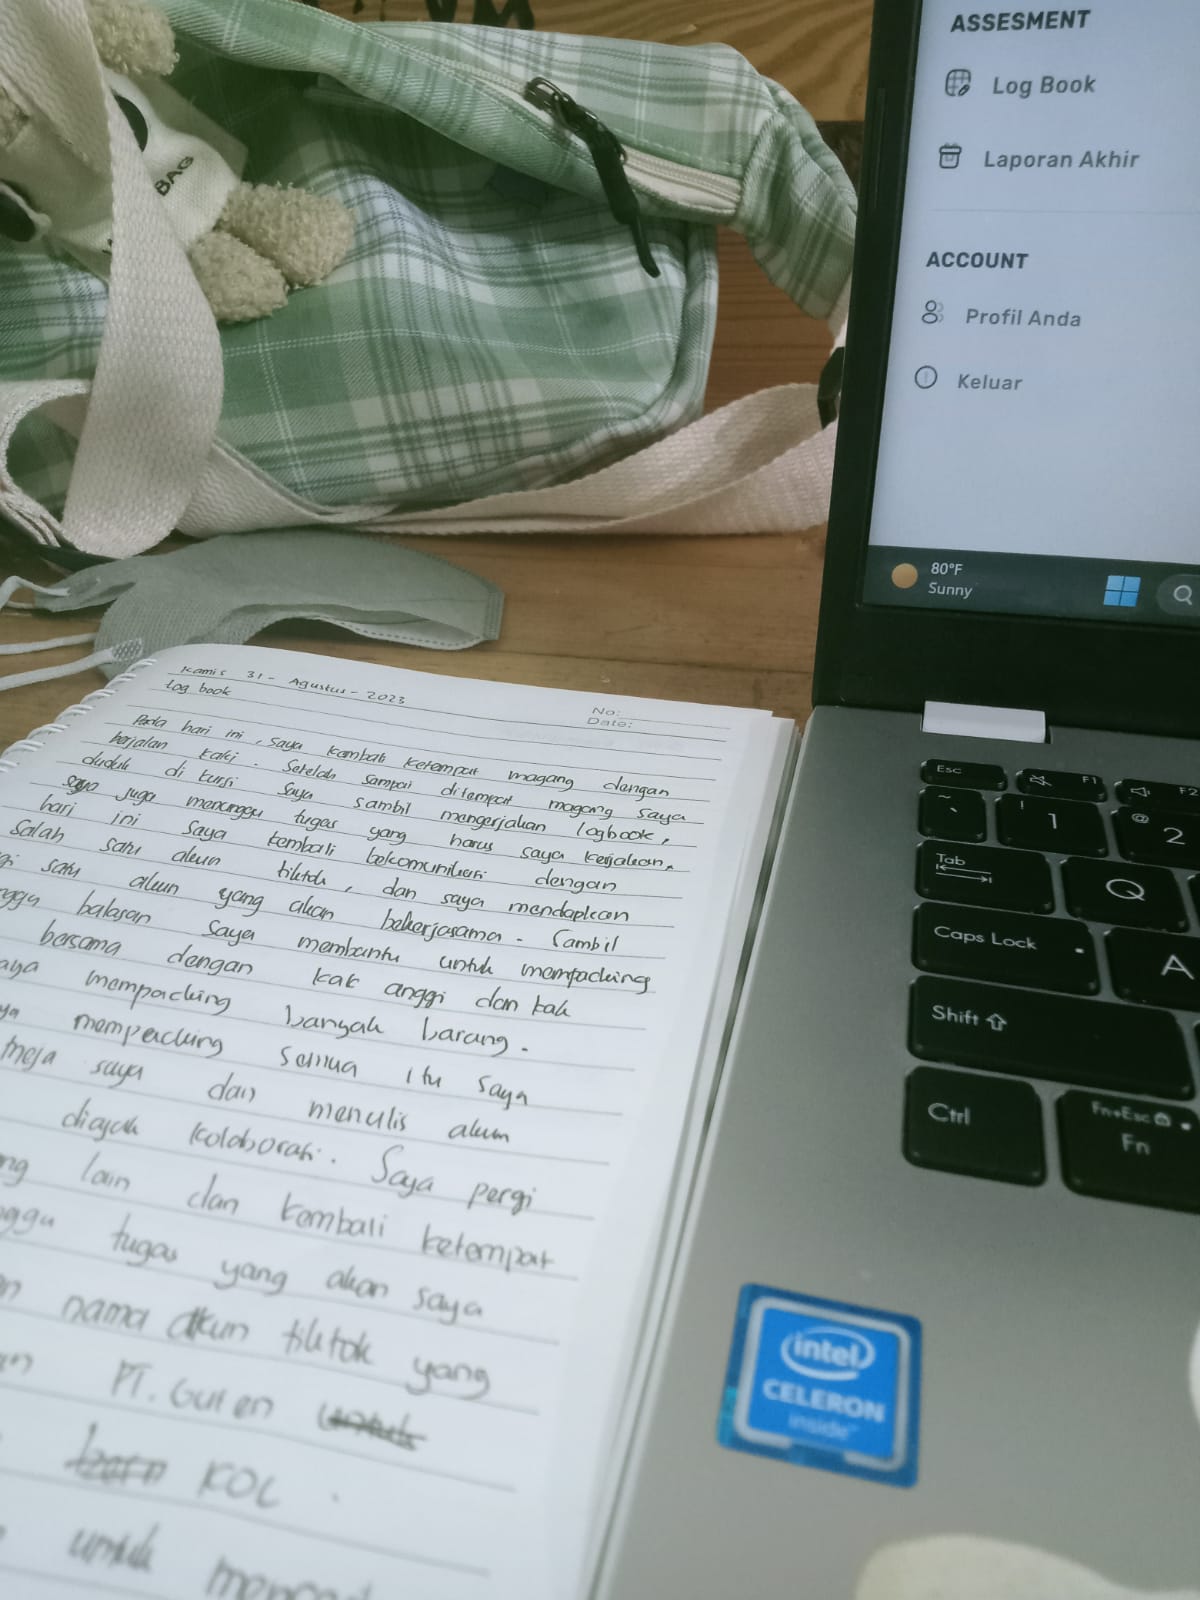 BAG
ASSESMENT
Log Book
Laporan Akhir
ACCOUNT
Profil Anda
Keluar
80°F
Sunny
Kamis 31 - Agustus - 2023
Log book
No:
Date:
Pada hari ini, saya kembali ketempat magang dengan
berjalan kaki. Setelah sampai ditempat magang saya
duduk di kursi saya sambil mengerjakan logbook,
saya juga menunggu tugas yang harus saya kerjakan.
hari ini saya kembali bekomunikasi dengan
salah satu akun tiktok, dan saya mendapkan
satu akun yang akan bekerjasama. Sambil
balasan saya membantu untuk mempacking
bersama dengan kak anggi dan kak
mempacking banyak barang.
mempacking semua itu saya
meja saya dan menulis akun
diajak kolaborasi. Saya pergi
lain dan kembali ketempat
tugas yang akan saya
nama akun tiktok yang
PT. Guten untuk
KOL.
untuk
Esc
F1
F2
~
!
1
@
2
Tab
Q
Caps Lock
A
Shift
Ctrl
Fn+Esc
Fn
intel
CELERON
inside™